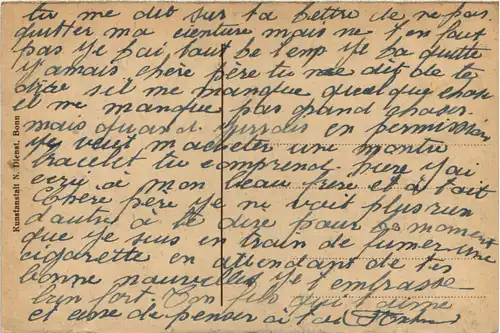 tu me dit sur ta lettre de ne pas
quitter ma ceinture mais ne t'en fait
pas je l'ai tout le temp je la quitte
jamais chère père tu me dit de te
dire sil me manque quelque chose
il me manque pas grand choses
mais quand j'irais en permission
je veut m'acheter une montre
bracelet tu comprend hiere j'ai
ecrit à mon beau frère et à
Chère père je ne voit plus rien
d'autre à te dire pour le moment
que je suis en train de fumer une
cigarette en attendant de tes
bonne nouvelles je t'embrasse
bien fort. Ton fils qui t'aime
et de penser à toi
Kunstanstalt N. Dienst, Bonn